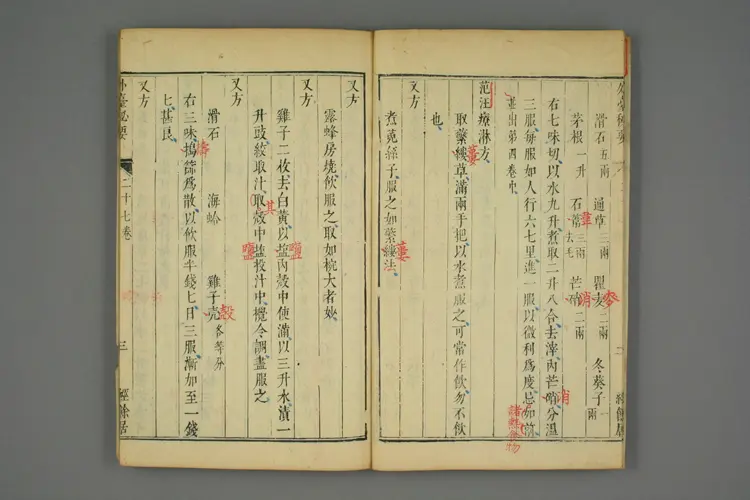 外臺秘要
滑石五兩 通草三兩 瞿麥二兩 冬葵子一兩
茅根一升 石葦三兩去毛 芒硝二兩
右七味切以水九升煮取二升八合去滓內芒硝分溫
三服每服如人行六七里進一服以微利為度忌如前
並出第四卷中
范汪療淋方
取蘩縷草滿兩手把以水煮服之可常作飲勿不飲
也
又方
煮莵絲子服之如蘩縷法
又方
露蜂房燒飲服之取如梡大者妙
又方
雞子二枚去白黃以塩內殼中使滿以三升水漬一
升豉絞取汁取殼中塩投汁中攪令調盡服之
又方
滑石 海蛤 雞子壳各等分
右三味搗篩為散以飲服半錢匕日三服漸加至一錢
匕甚良
又方
外臺秘要
二十七卷
三
經餘居